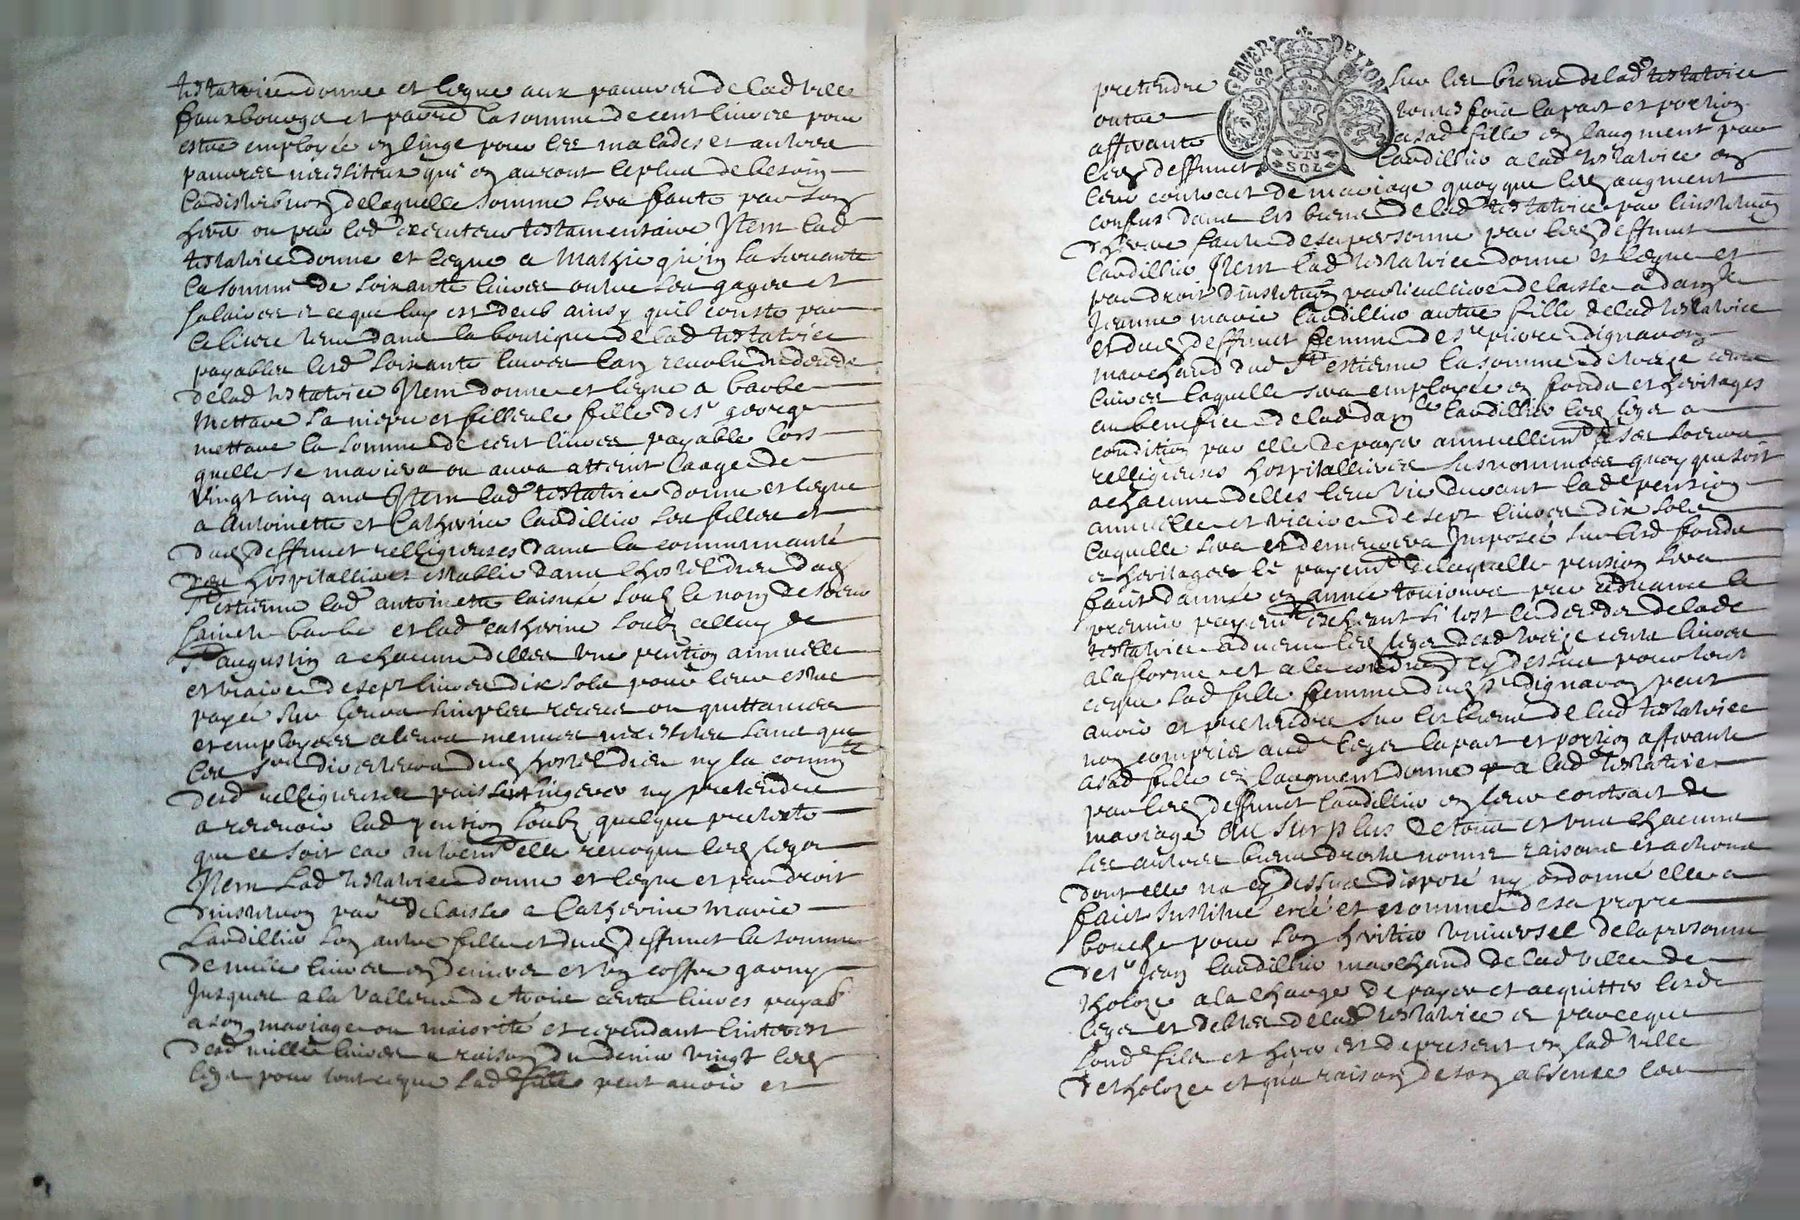 testatrice donne et legue aux pauvres de lad ville
fauxbourgs et parre la somme de cent livres pour
estre employée en linge pour les malades et autres
pauvres necessiteux qui en auront le plus de besoin
la distribuon de laquelle somme sera faute par son
hers ou par led executeur testamentaire Item lad
testatrice donne et legue a Mathie grim sa servante
la somme de soixante livres outre ses gages et
salaires a ce que luy est deub ainsy quil conste par
le livre tenu dans la boutique de lad testatrice
payables lesd soixante livres lan revolu du deceds
de lad testatrice Item donne et legue a barbe
mettare sa niepce et filleule fille de sr george
mettare la somme de cent livres payable lors
quelle se mariera ou aura atteint laage de
vingt cinq ans Item lad testatrice donne et legue
a Antoinette et Catherine Caudillio ses filles et
dud deffunct relligieuses dans la communauté
des hospitallieres establie dans lhostel dieu dud
St estienne lad antoinette laisnee soub le nom de soeur
saincte barbe et lad catherine soub celluy de
St augustin a chacune delles une pention annuelle
et viaire de sept livres dix sols pour leur estre
payée sur leurs simples receus ou quittances
et employées a leurs menues necessites sans que
les srs directeurs dud hostel dieu ny la commté
desd relligieuses puissent singerer ny pretendre
a recevoir lad pention soub quelque pretexte
que ce soit car autremt elle revoque led legat
Item Lad testatrice donne et legue et par droit
dinstituon parre delaisse a Catherine Marie
Caudillio son autre fille et dud deffunct la somme
de mille livres en deniers et un coffre garny
Jusques a la valleur de trois cents livres payab
a son mariage ou maiorité et cependant linterest
desd mille livres a raison du denier vingt led
legat pour tout ce que Lad fille peut avoir et
pretendre sur les biens de lad testatrice
outre toutes fois la part et portion
affirante a sad fille en laugment par
led deffunct Caudillio a lad testatrice en
leur contract de mariage quoy que led augment
confus dans les biens de lad testatrice par linstituon
dheritier faite de sa personne par led deffunct
Caudillio Item Lad testatrice donne et legue et
par droit dinstituon particulliere delaisse a damlle
Jeanne marie Caudillio autre fille de lad testatrice
et dud deffunct femme de sr pierre dignaron
marchand dud St estienne la somme de treize cents
livres laquelle sera employée en fonds et heritages
au benefice de lad damlle Caudillio led legat a
condition par elle de payer annuellemt a ses soeurs
relligieuses hospitallieres susnommées quoy que soit
a chacune delles leur vie durant lad pention
annuelle et viaire de sept livres dix sols
laquelle sera et demeurera Imposée sur lesd fonds
et heritages le payemt de laquelle pension sera
fait dannée en année tousiours par advance le
premier payemt escheant si tost le deceds de lade
testatrice advenu led legat desd treize cents livres
a la forme et a la condion cy dessus pour tout
ce que lad fille femme dud sr dignaron peut
avoir et pretendre sur les biens de lad testatrice
non compris aud legat la part et portion affirante
a sad fille en laugment donné a lad testatrice
par led deffunct Caudillio en leur contract de
mariage au surplus de tous et uns chacuns
les autres biens droits noms raisons et actions
dont elle na cy dessus disposé ny ordonné elle a
faict Institué creé et nommé de sa propre
bouche pour son heritier universel de la personne
de sr Jean Caudillio marchand de lad ville de
tholoze a la charge de payer et acquitter lesde
legat et debtes de lad testatrice et parce que
sond fils et hers est de present en lad ville
de tholoze et qua raison de son absence les
GENERL DE LYON
UN
SOL